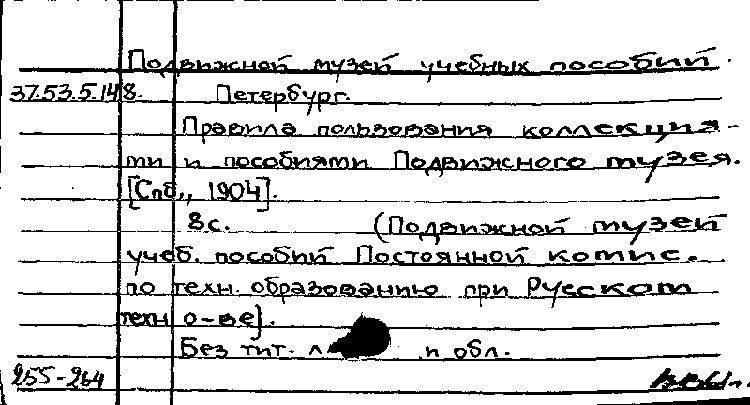 Подвижной музей учебных пособий.
37.53.5.148. Петербург.
Правила пользования коллекция-
ми и пособиями Подвижного музея.
[Спб., 1904].
8с. (Подвижной музей
учеб. пособий Постоянной комис.
по техн. образованию при Русском
техн о-ве].
Без тит. л и обл.
255-264